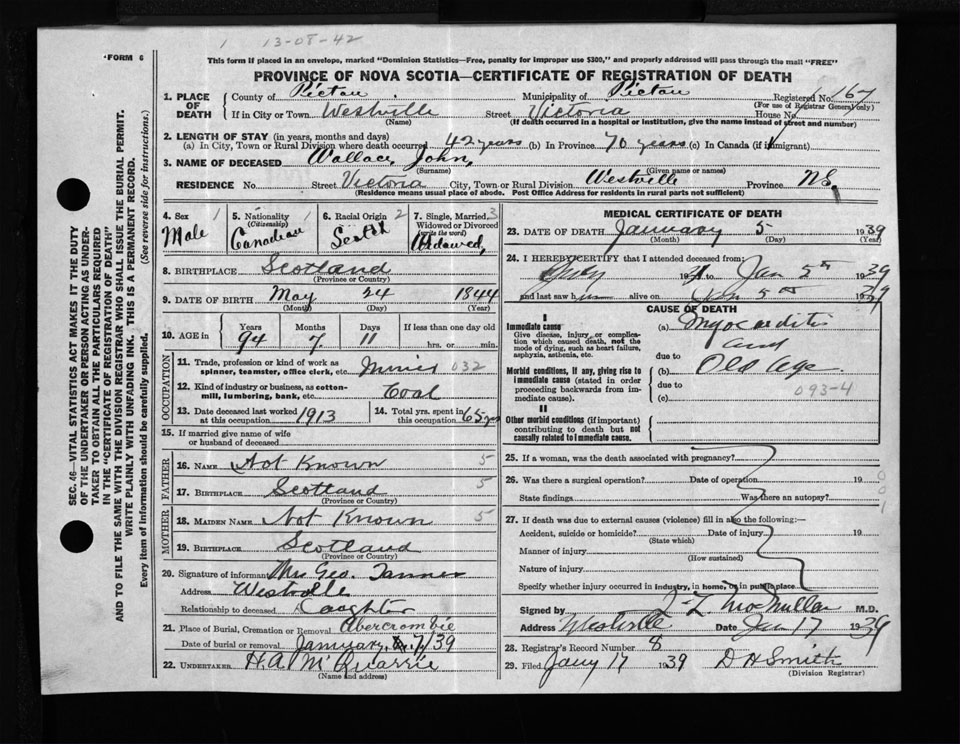 1 13-08-42
FORM 6
This form if placed in an envelope, marked "Dominion Statistics—Free, penalty for improper use $300," and properly addressed will pass through the mail "FREE"
PROVINCE OF NOVA SCOTIA—CERTIFICATE OF REGISTRATION OF DEATH
1. PLACE OF DEATH County of Pictou Municipality of Pictou Registered No. 167
(For use of Registrar General only)
If in City or Town Westville Street Victoria House No.
(Name) (If death occurred in a hospital or institution, give the name instead of street and number)
2. LENGTH OF STAY (in years, months and days)
(a) In City, Town or Rural Division where death occurred 42 years (b) In Province 70 years (c) In Canada (if immigrant)
3. NAME OF DECEASED Wallace, John,
(Surname) (Given name or names)
RESIDENCE No. Street Victoria City, Town or Rural Division Westville Province N.S.
(Residence means usual place of abode. Post Office Address for residents in rural parts not sufficient)
4. Sex 1 Male
5. Nationality 1 (Citizenship) Canadian
6. Racial Origin 2 Scotch
7. Single, Married, 3 Widowed or Divorced (write the word) Widowed,
8. BIRTHPLACE Scotland
(Province or Country)
9. DATE OF BIRTH May 24 1844
(Month) (Day) (Year)
10. AGE in Years Months Days If less than one day old
94 7 11 hrs. or min.
OCCUPATION
11. Trade, profession or kind of work as spinner, teamster, office clerk, etc. Miner 032
12. Kind of industry or business, as cotton-mill, lumbering, bank, etc. Coal
13. Date deceased last worked at this occupation 1913
14. Total yrs. spent in this occupation 65 yrs
15. If married give name of wife or husband of deceased
FATHER
16. NAME Not Known 5
17. BIRTHPLACE Scotland 5
(Province or Country)
MOTHER
18. MAIDEN NAME Not Known 5
19. BIRTHPLACE Scotland
(Province or Country)
20. Signature of informant Mrs Geo. Tanner
Address Westville
Relationship to deceased Daughter
21. Place of Burial, Cremation or Removal Abercrombie
Date of burial or removal January, 7/39
22. UNDERTAKER H.A. McQuarrie
(Name and address)
MEDICAL CERTIFICATE OF DEATH
23. DATE OF DEATH January 5 1939
(Month) (Day) (Year)
24. I HEREBY CERTIFY that I attended deceased from:
to Jan 5th 1939
and last saw him alive on Jan 5th 1939
CAUSE OF DEATH
I
Immediate cause
Give disease, injury or complication which caused death, not the mode of dying, such as heart failure, asphyxia, asthenia, etc.
(a) Myocarditis
and
due to
Morbid conditions, if any, giving rise to immediate cause (stated in order proceeding backwards from immediate cause).
(b) Old Age
due to 093-4
(c)
II
Other morbid conditions (if important) contributing to death but not causally related to immediate cause.
25. If a woman, was the death associated with pregnancy?
26. Was there a surgical operation? Date of operation 19
State findings Was there an autopsy?
27. If death was due to external causes (violence) fill in also the following:—
Accident, suicide or homicide? Date of injury 19
(State which)
Manner of injury
(How sustained)
Nature of injury
Specify whether injury occurred in industry, in home, or in public place
Signed by J-L McMullan M.D.
Address Westville Date Jan 17 1939
28. Registrar's Record Number 8
29. Filed Jany 17 1939 D H Smith
(Division Registrar)
SEC. 46—VITAL STATISTICS ACT MAKES IT THE DUTY
OF THE UNDERTAKER OR PERSON ACTING AS UNDER-
TAKER TO OBTAIN ALL THE PARTICULARS REQUIRED
IN THE "CERTIFICATE OF REGISTRATION OF DEATH"
AND TO FILE THE SAME WITH THE DIVISION REGISTRAR WHO SHALL ISSUE THE BURIAL PERMIT.
WRITE PLAINLY WITH UNFADING INK. THIS IS A PERMANENT RECORD.
Every item of information should be carefully supplied. (See reverse side for instructions.)